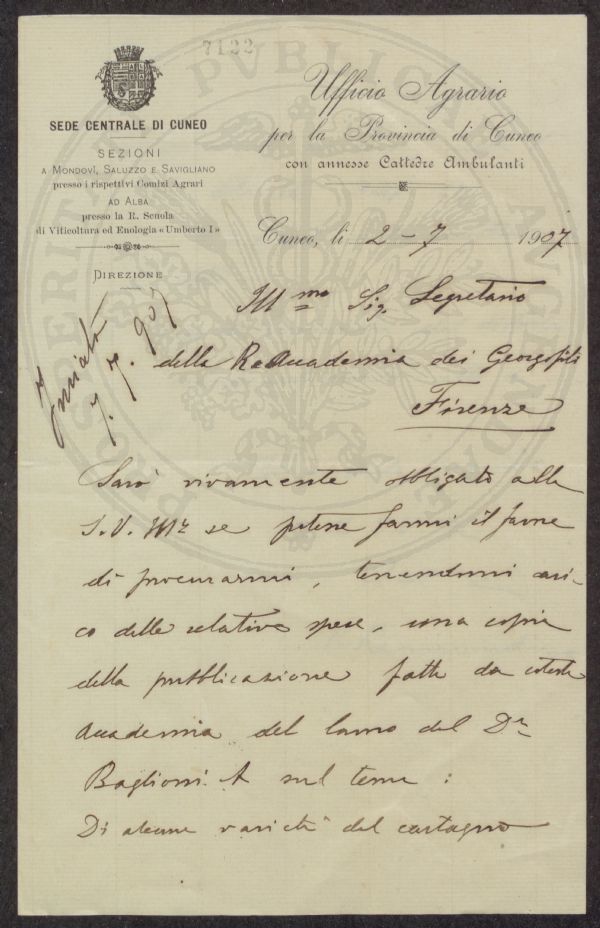 7122
SEDE CENTRALE DI CUNEO
SEZIONI
A MONDOVÌ, SALUZZO E SAVIGLIANO
presso i rispettivi Comizi Agrari
AD ALBA
presso la R. Scuola
di Viticoltura ed Enologia «Umberto I»
DIREZIONE
Ufficio Agrario
per la Provincia di Cuneo
con annesse Cattedre Ambulanti
Cuneo, li 2-7 1907
Inviato
7.7.907
Ill mo Sig. Segretario
della R. Accademia dei Georgofili
Firenze
Sarò vivamente obbligato alla
S.V. Ill. se potesse farmi il favore
di procurarmi, tenendomi cari-
co delle relative spese, una copia
della pubblicazione fatta da cotesta
Accademia del lavoro del Dr
Baglioni. A sul tema:
Di alcune varietà del castagno